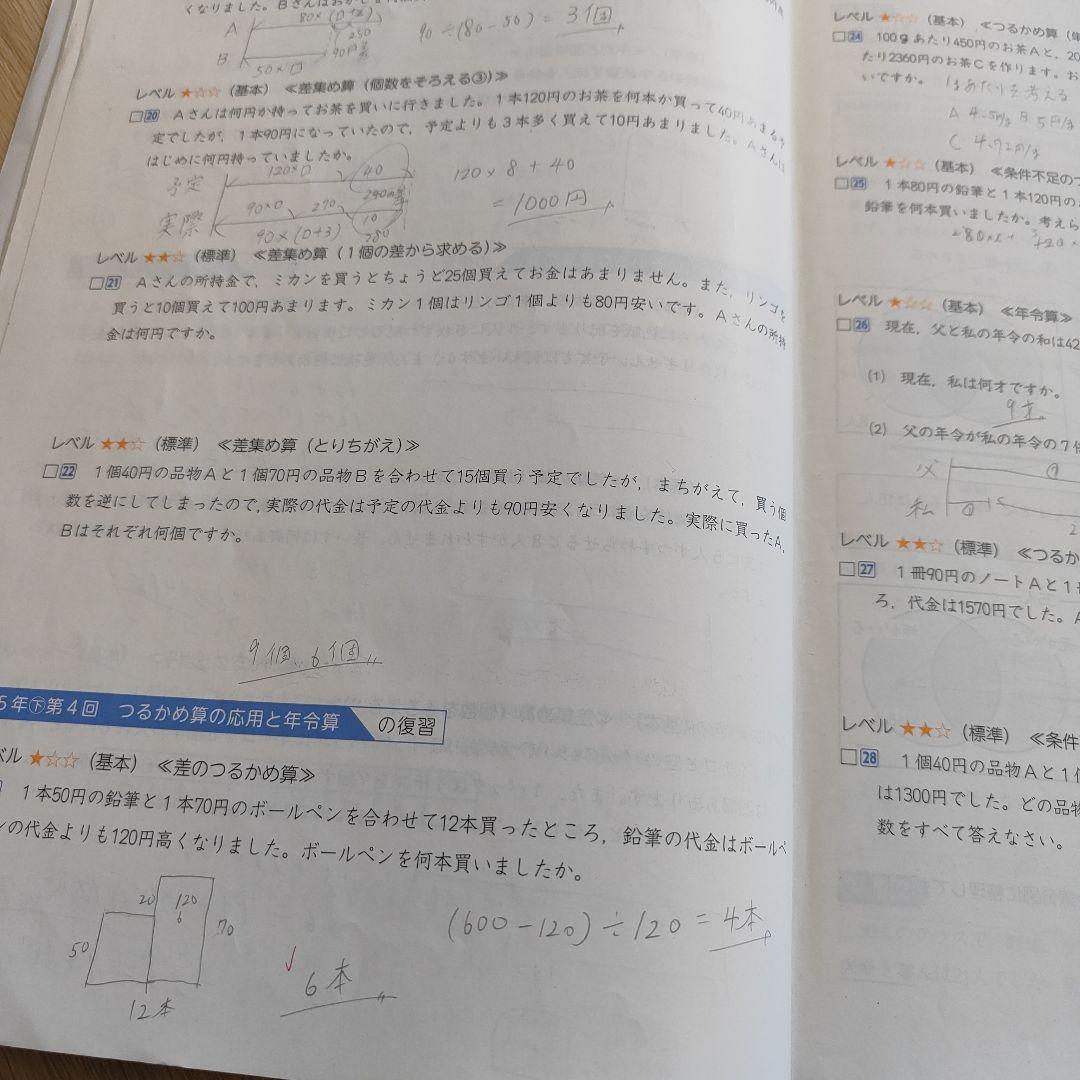 90÷(80－50)＝3個
80×(□＋2)
250
A
B
90円差
50×□
レベル ★☆☆（基本） ≪差集め算（個数をそろえる③）≫
□20 Aさんは何円か持ってお茶を買いに行きました。1本120円のお茶を何本か買って40円あまる予
定でしたが，1本90円になっていたので，予定よりも3本多く買えて10円あまりました。Aさんは
はじめに何円持っていましたか。
予定
120×□
40
240円差
実際
90×□
270
10
90×(□＋3)
280
120×8＋40
＝1000円
レベル ★★☆（標準） ≪差集め算（1個の差から求める）≫
□21 Aさんの所持金で，ミカンを買うとちょうど25個買えてお金はあまりません。また，リンゴを
買うと10個買えて100円あまります。ミカン1個はリンゴ1個よりも80円安いです。Aさんの所持
金は何円ですか。
レベル ★★☆（標準） ≪差集め算（とりちがえ）≫
□22 1個40円の品物Aと1個70円の品物Bを合わせて15個買う予定でしたが，まちがえて，買う個
数を逆にしてしまったので，実際の代金は予定の代金よりも90円安くなりました。実際に買ったA，
Bはそれぞれ何個ですか。
9個，6個
5年下第4回 つるかめ算の応用と年令算 の復習
ベル ★☆☆（基本） ≪差のつるかめ算≫
1本50円の鉛筆と1本70円のボールペンを合わせて12本買ったところ，鉛筆の代金はボールペ
ンの代金よりも120円高くなりました。ボールペンを何本買いましたか。
20
120
6
50
70
12本
6本
(600－120)÷120＝4本
レベル ★☆☆（基本） ≪つるかめ算（
□24 100gあたり450円のお茶Aと，20
たり2360円のお茶Cを作ります。お
いですか。
1gあたりを考える
A 4.5円/g B 5円/g
C 4.72円/g
レベル ★☆☆（基本） ≪条件不足のつ
□25 1本80円の鉛筆と1本120円の
鉛筆を何本買いましたか。考えら
レベル ★☆☆（基本） ≪年令算≫
□26 現在，父と私の年令の和は42
(1) 現在，私は何才ですか。
9才
(2) 父の年令が私の年令の7倍
父
⑦
私
①
2
レベル ★★☆（標準） ≪つるか
□27 1冊90円のノートAと1冊
ろ，代金は1570円でした。A
レベル ★★☆（標準） ≪条件
□28 1個40円の品物Aと1個
は1300円でした。どの品物
数をすべて答えなさい。